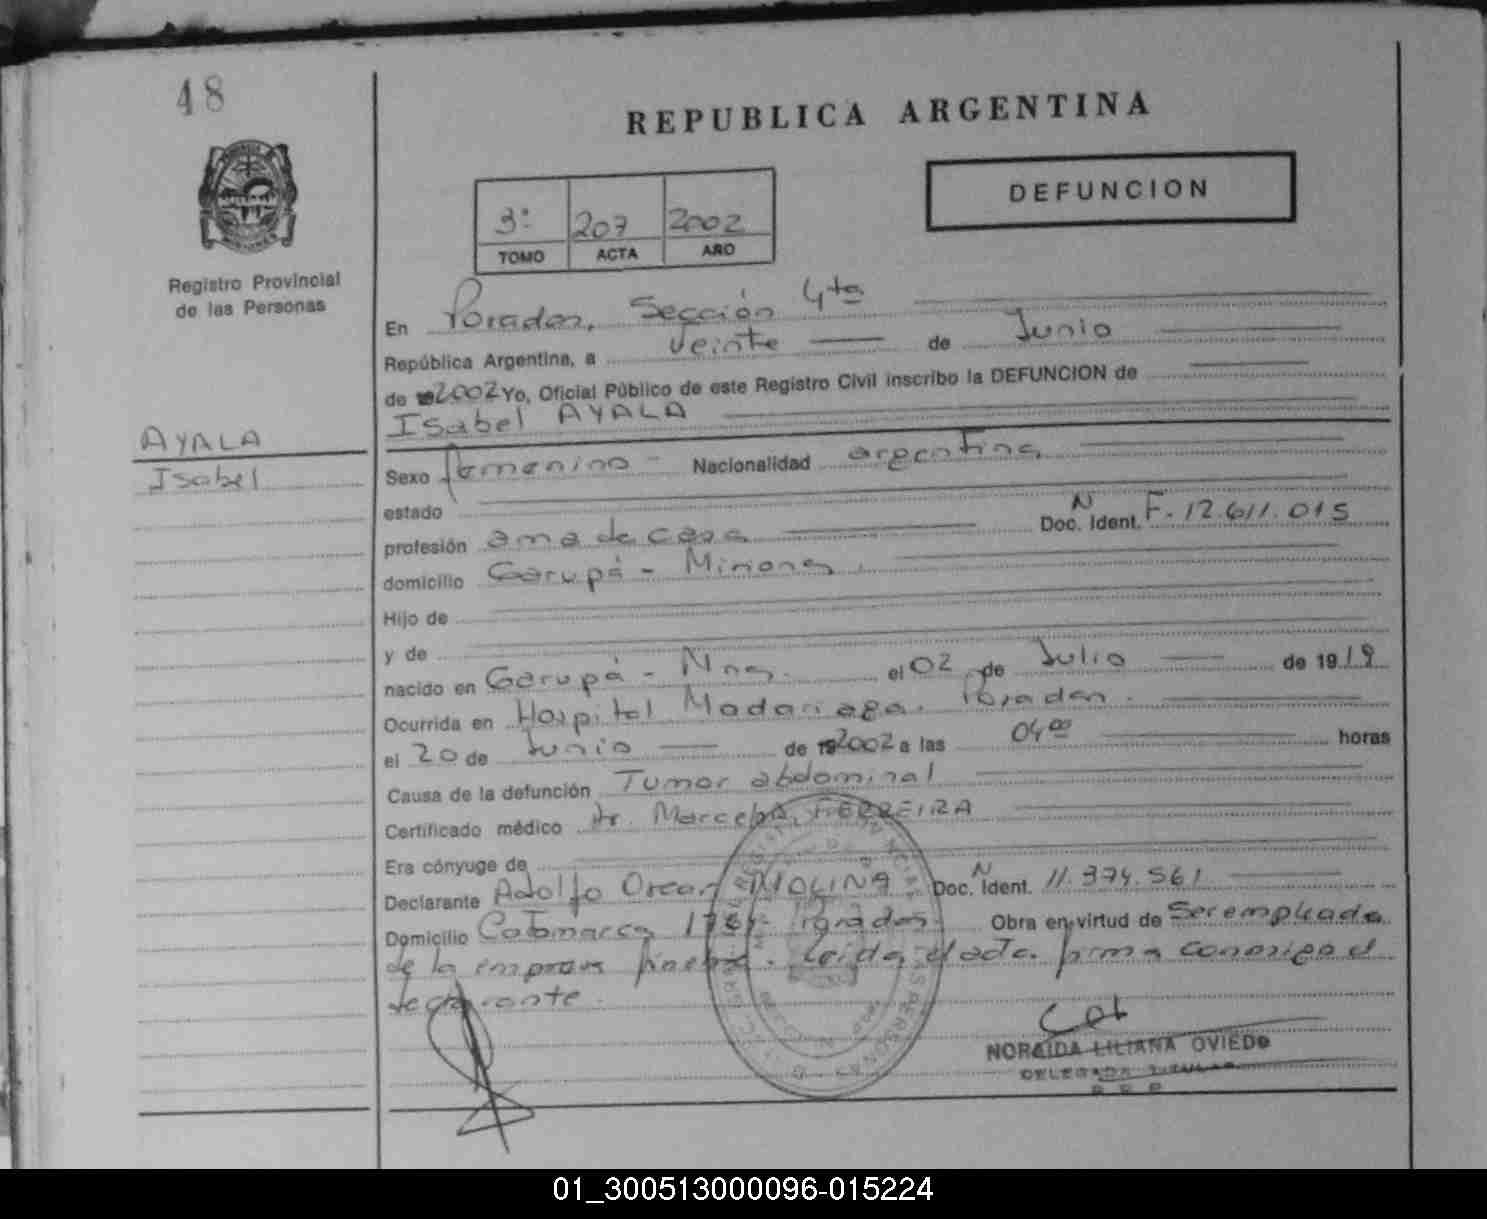 48
REPUBLICA ARGENTINA
DEFUNCION
3º 207 2002
TOMO ACTA AÑO
Registro Provincial
de las Personas
En Posadas, Sección 4ta
República Argentina, a veinte de Junio
de 2002 Yo, Oficial Público de este Registro Civil inscribo la DEFUNCION de
Isabel AYALA
AYALA
Isabel
Sexo femenino - Nacionalidad argentina
estado
profesión ama de casa Doc. Ident. N F. 12.611.015
domicilio Garupá - Misiones.
Hijo de
y de
nacido en Garupá - Mnes. el 02 de Julio de 1919
Ocurrida en Hospital Madariaga. Posadas.
el 20 de Junio de 2002 a las 04⁰⁰ horas
Causa de la defunción Tumor abdominal
Certificado médico Dr. Marcelo FERREIRA
Era cónyuge de
Declarante Adolfo Oscar MOLINA Doc. Ident. N 11.374.561
Domicilio Catamarca Posadas. Obra en virtud de Ser empleado
de la empresa fúnebre. Leída el acta. firma conmigo el
declarante.
NORAIDA LILIANA OVIEDO
DELEGADA TITULAR
R P P
01_300513000096-015224